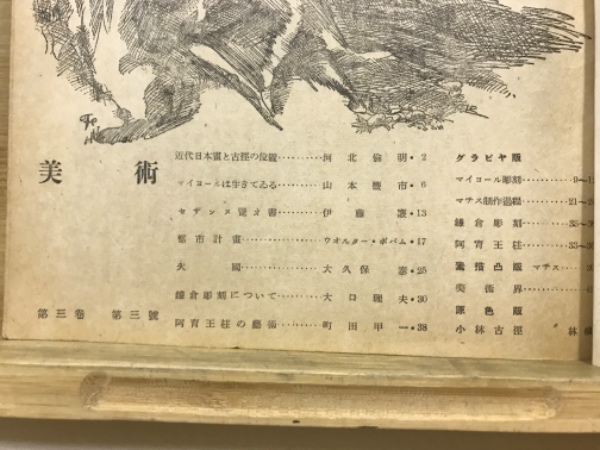 美術
近代日本畫と古徑の位置………河北倫明・2
マイヨールは生きてゐる………山本豊市・6
セザンヌ覺才書………伊藤廉・13
都市計畫………ウオルター・ボバム・17
失國………大久保泰・25
鎌倉彫刻について………大口理夫・30
阿育王柱の藝術………町田甲一・38
第三卷 第三號
グラビヤ版
マイヨール彫刻……9〜1
マチス制作過程……21〜2
鎌倉彫刻……35〜3
阿育王柱……33〜3
素描凸版 マチス
美術界
原色版
小林古徑